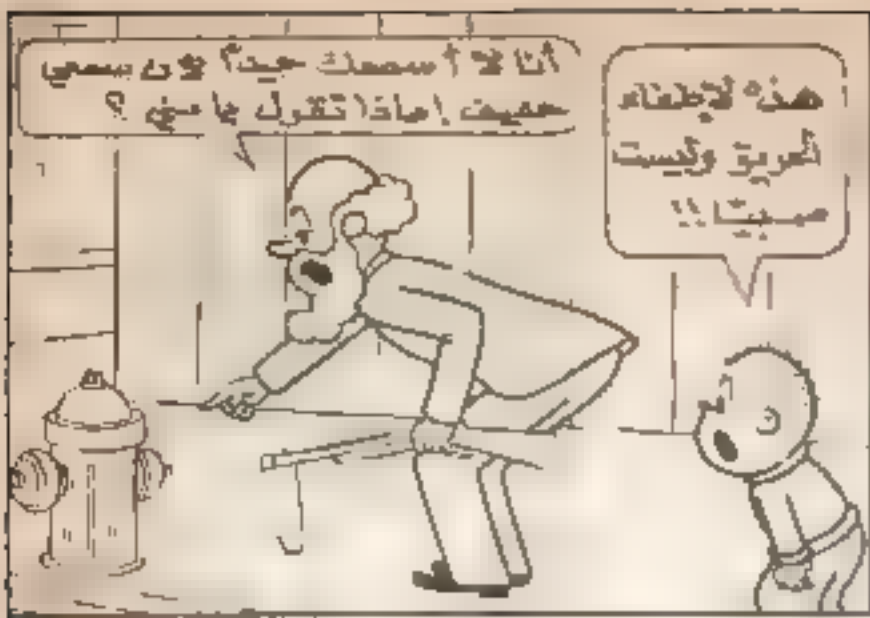 أنا لا أسمعك جيداً لأن سمعي
ضعيف! ماذا تقول يا بني ؟
هذه لإطفاء
الحريق وليست
صبيّا !!